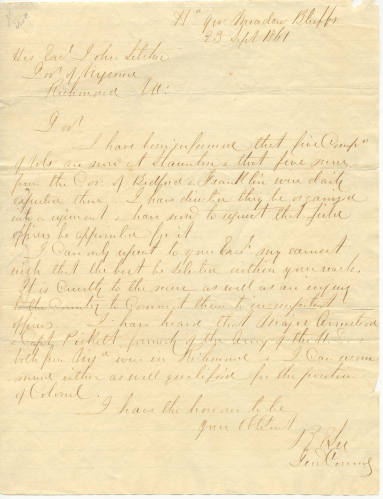 Hd Qrs Meadow Bluffs
23 Sept 1861
His Excy John Letcher
Govr of Virginia
Richmond Va:
Govr
I have been informed that five Compys
of Vols are now at Staunton & that five more
from the Cos of Bedford & Franklin were daily
expected there. I have directed they be organized
into a regiment & have now to request that field
officers be appointed for it
I can only repeat to your Excy my earnest
wish that the best be selected within your reach.
It is cruelty to the men as well as an injury
to the Country to Commit them to incompetent
officers. I have heard that Major Armistead
& Capt Pickett, formerly of the Army of the U.S.
both from Virga were in Richmond & I can recom
mend either as well qualified for the position
of Colonel.
I have the honour to be
your obt servt
R E Lee
Genl Commg